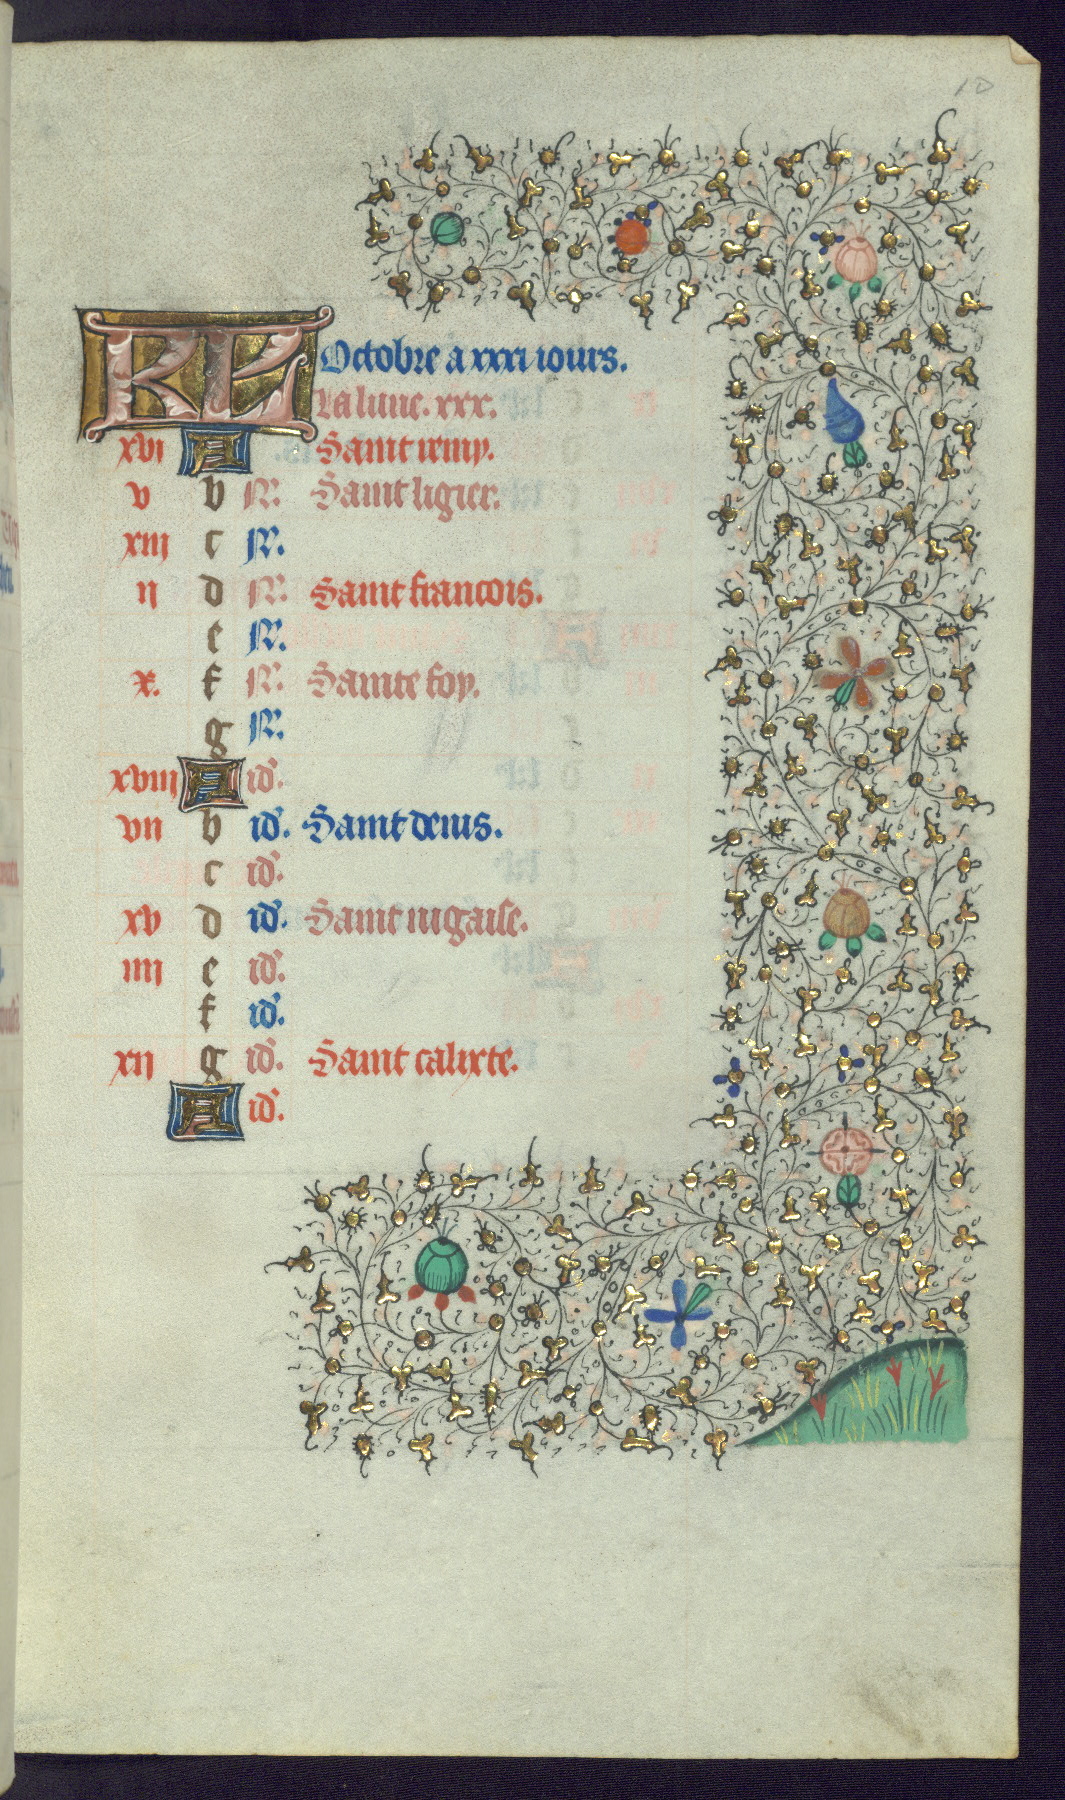 10
KL Octobre a xxxi iours.
La lune. xxx.
xvi A Saint remy.
v b N. Saint ligier.
xiii c N.
ii d N. Saint francois.
e N.
x. f N. Sainte foy.
g N.
xviii A id.
vii b id. Saint denis.
c id.
xv d id. Saint nigaise.
iiii e id.
f id.
xii g id. Saint calixte.
A id.